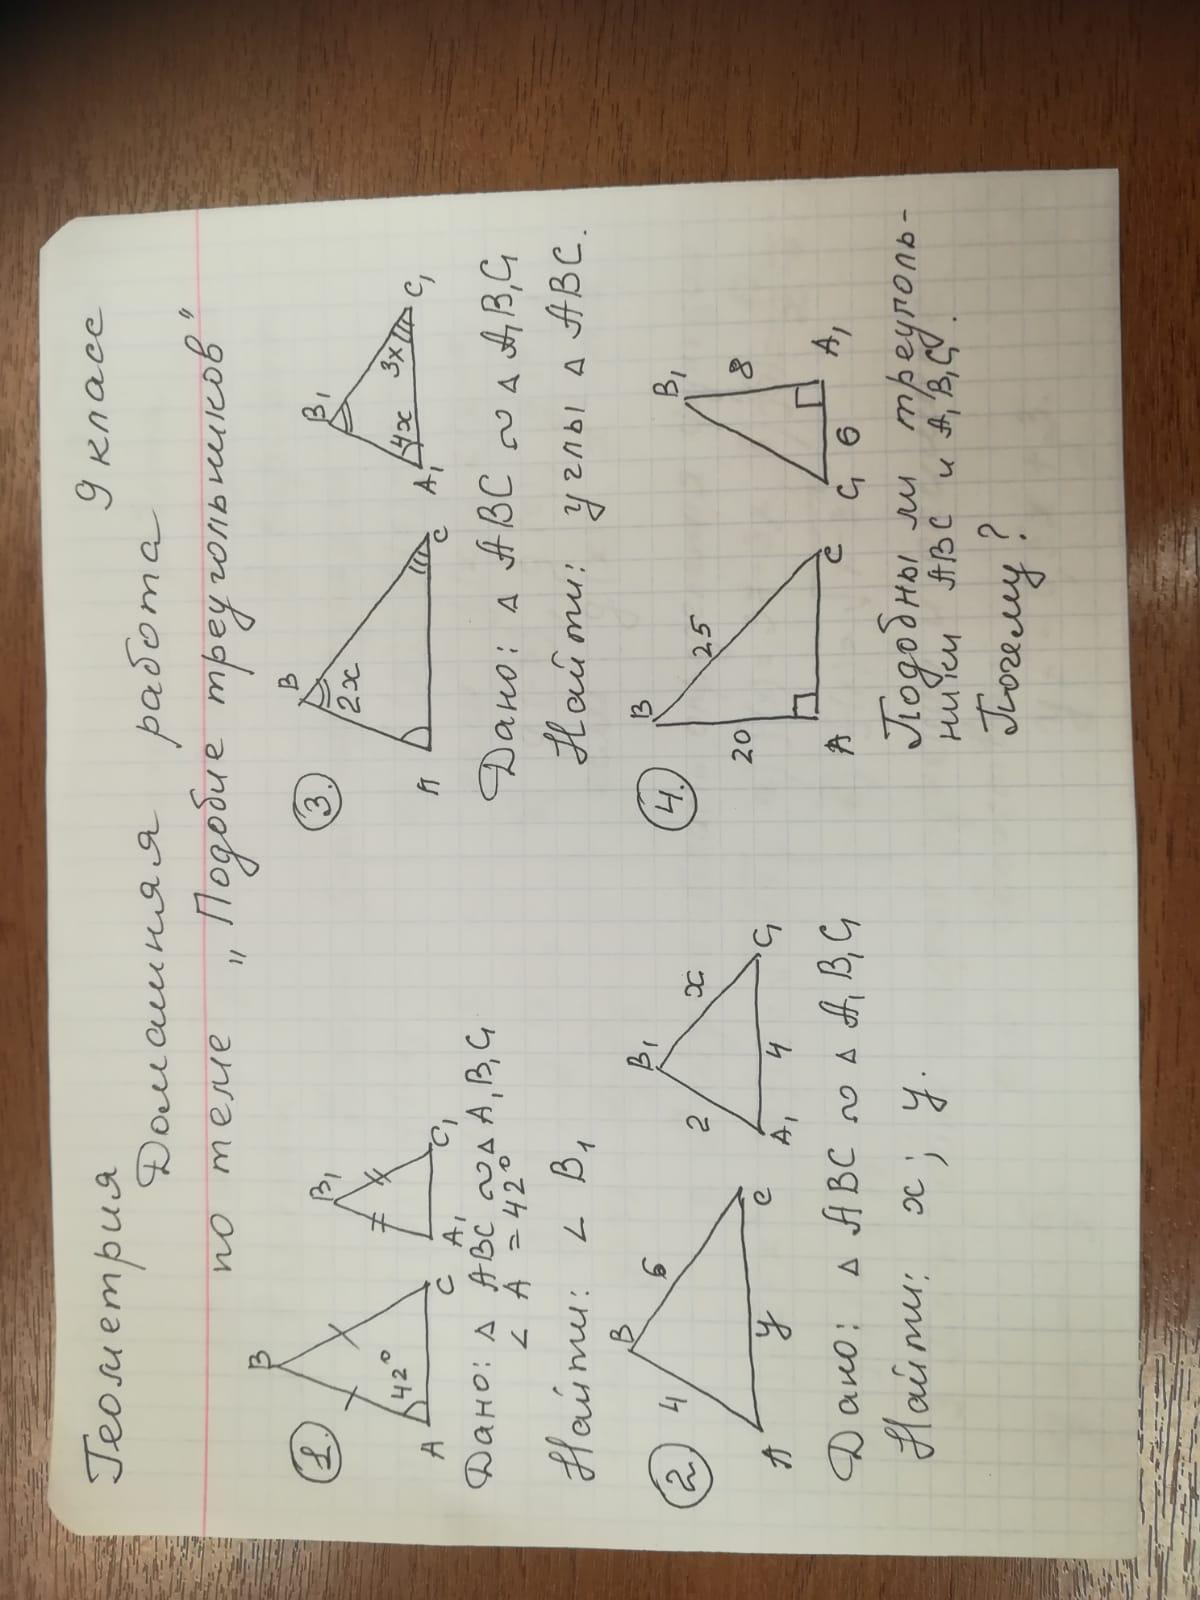 Геометрия 9 класс
Домашняя работа
по теме „Подобие треугольников"
1.
B
42°
A
C
B₁
A₁
C₁
Дано: △ ABC ∾ △ A₁B₁C₁
∠ A = 42°
Найти: ∠ B₁
2.
B
4
6
A
y
C
B₁
2
x
A₁
4
C₁
Дано: △ ABC ∾ △ A₁B₁C₁
Найти: x; y.
3.
B
2x
A
C
B₁
4x
3x
A₁
C₁
Дано: △ ABC ∾ △ A₁B₁C₁
Найти: углы △ ABC.
4.
B
20
25
A
C
B₁
8
C₁
6
A₁
Подобны ли треуголь-
ники ABC и A₁B₁C₁.
Почему?